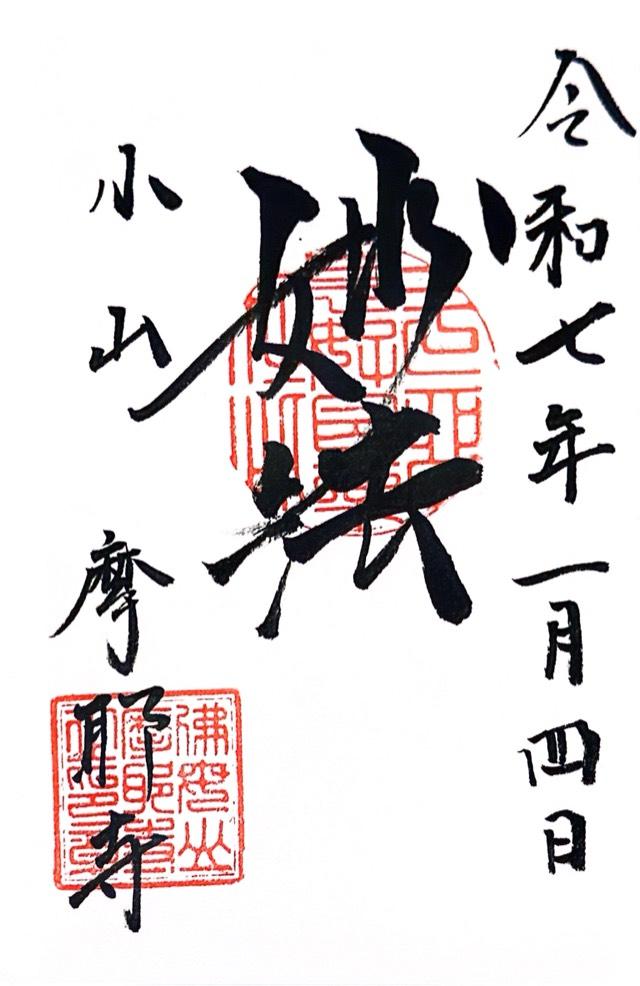 令和七年一月四日
妙法
小山
摩耶寺